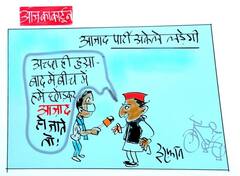 आज का कार्टून
आजाद पार्टी अकेले लड़ेगी
अच्छा ही हुआ
बाद में बीच में
हमें छोड़कर
आजाद
हो जाते
तो!